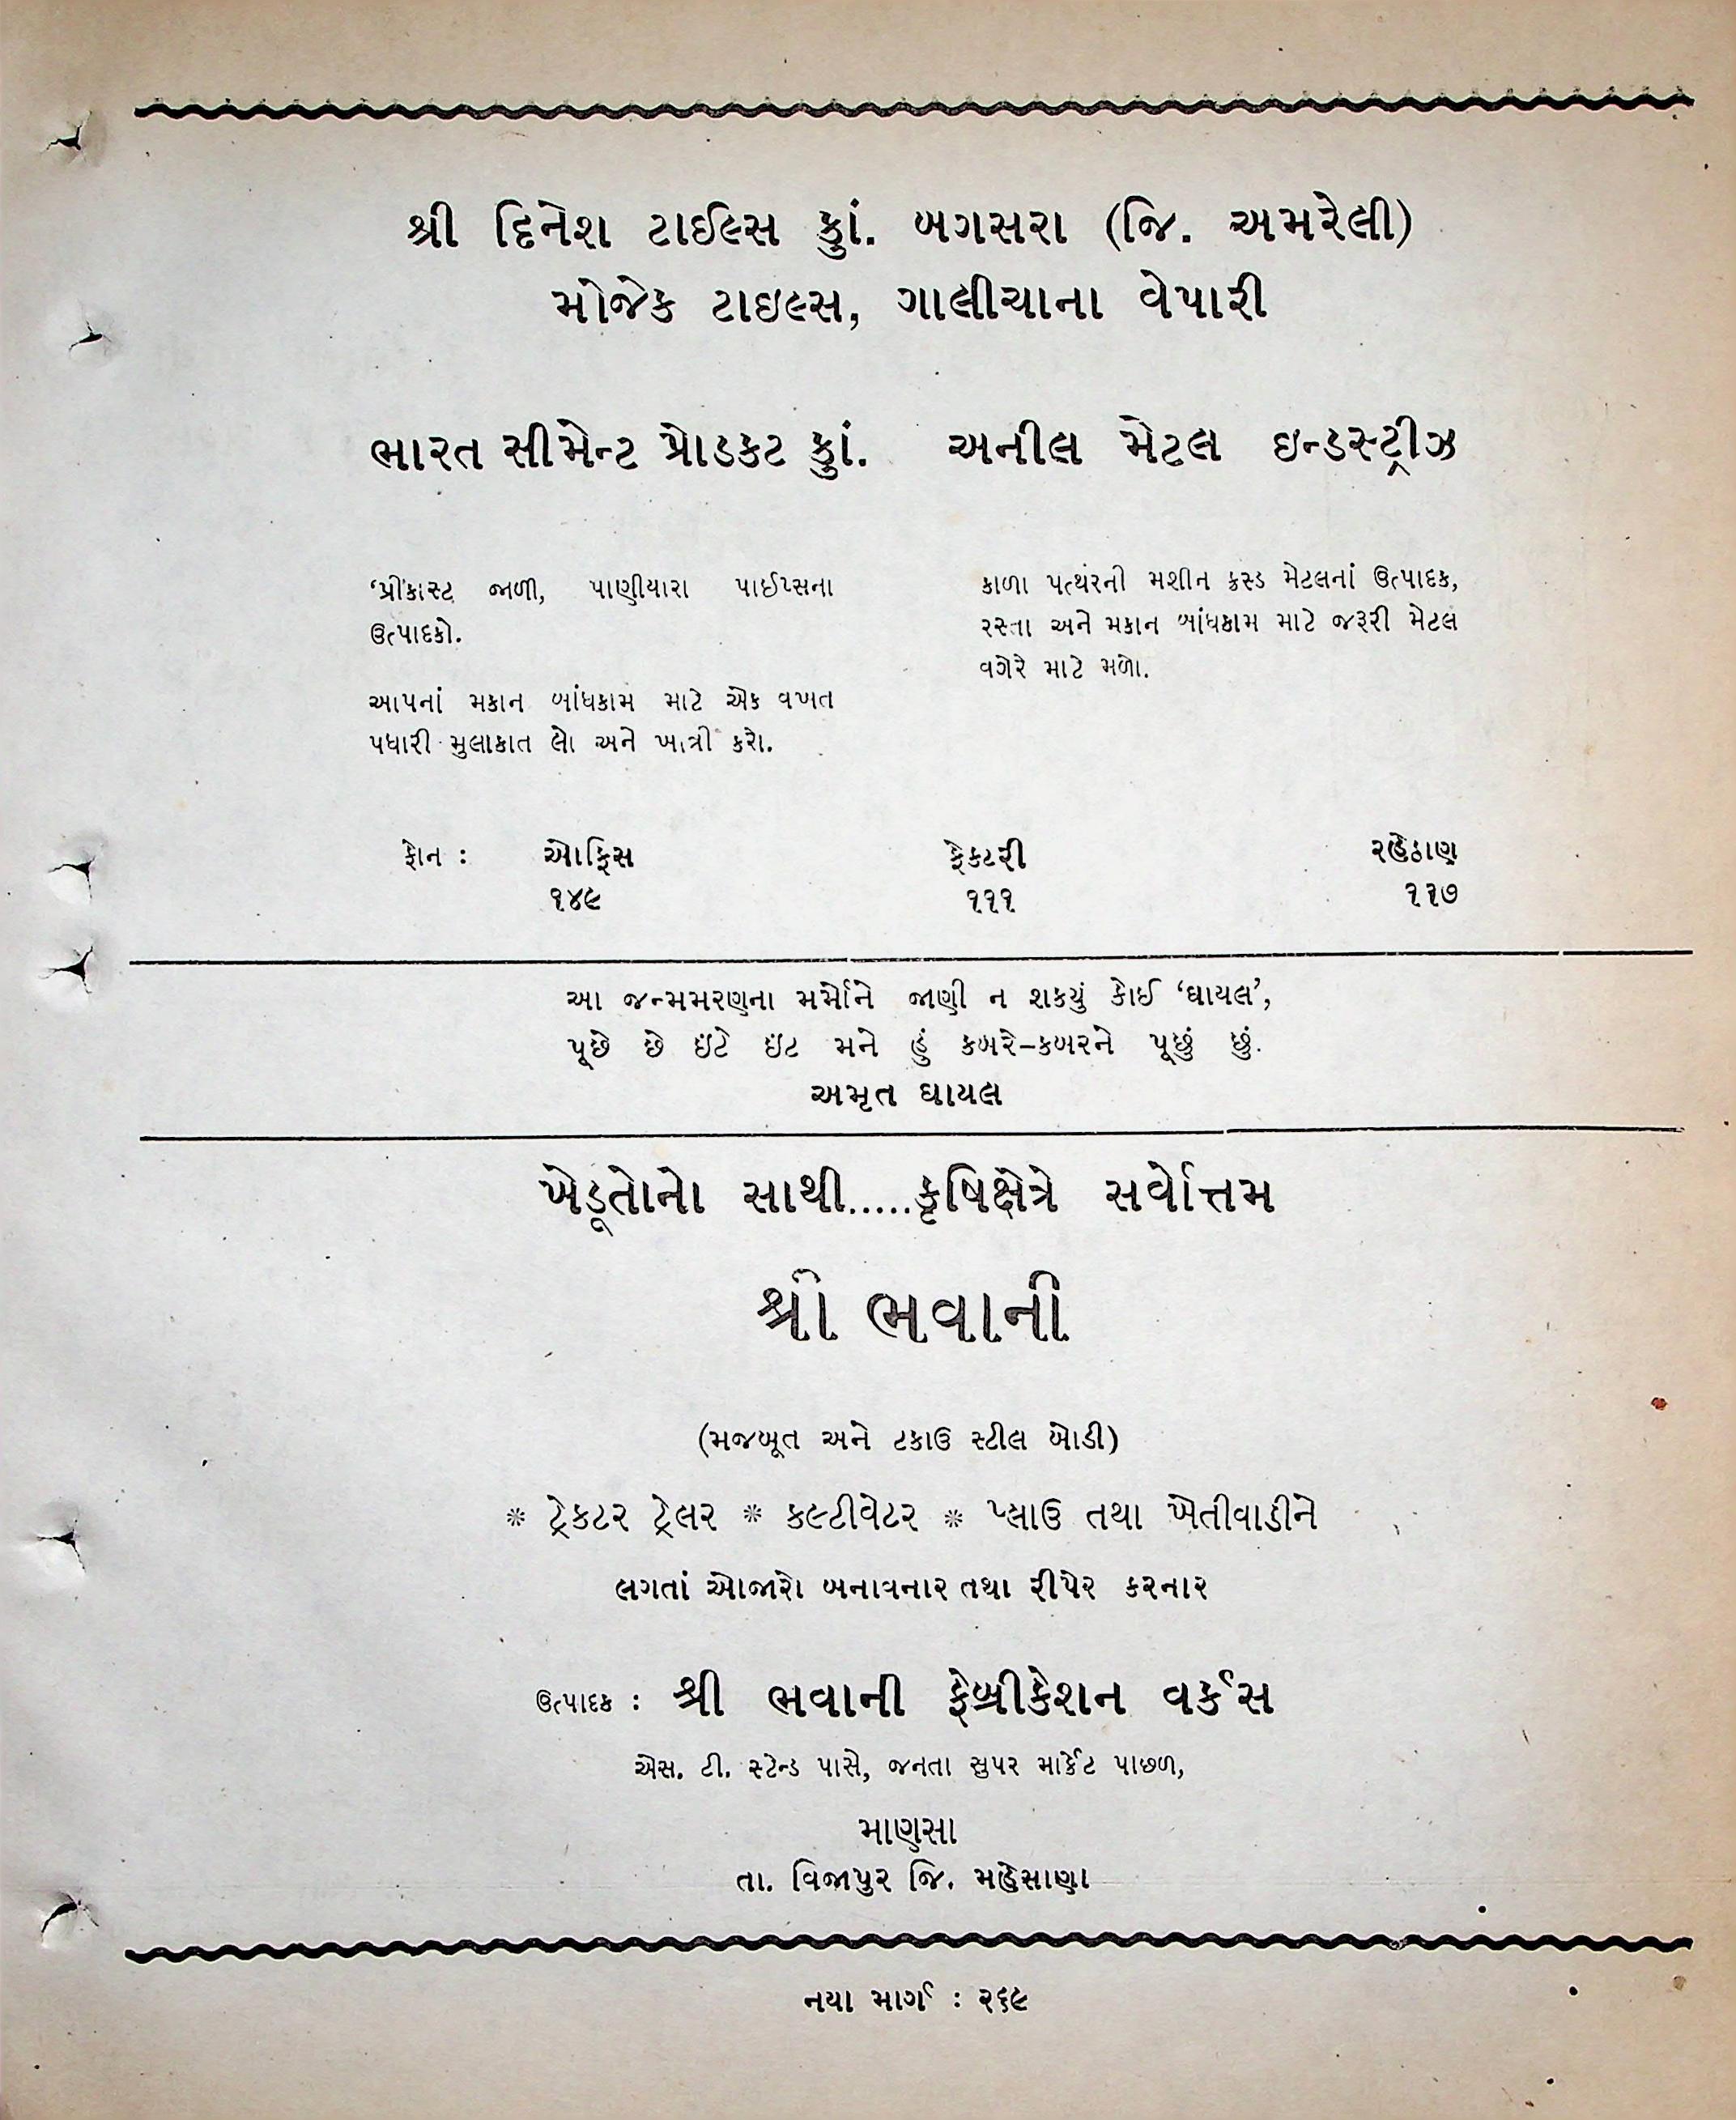 શ્રી દિનેશ ટાઈલ્સ કુાં. બગસરા (જિ. અમરેલી)
મોજેક ટાઇલ્સ, ગાલીચાના વેપારી
ભારત સીમેન્ટ પ્રોડકટ કુાં.
'પ્રીકાસ્ટ જાળી, પાણીયારા પાઈપ્સના
ઉત્પાદકો.
આપનાં મકાન બાંધકામ માટે એક વખત
પધારી મુલાકાત લો અને ખાત્રી કરો.
અનીલ મેટલ ઇન્ડસ્ટ્રીઝ
કાળા પત્થરની મશીન ક્રસ્ડ મેટલનાં ઉત્પાદક,
રસ્તા અને મકાન બાંધકામ માટે જરૂરી મેટલ
વગેરે માટે મળો.
ફોન : ઓફિસ ફેકટરી રહેઠાણ
૧૪૯ ૧૧૧ ૧૧૭
આ જન્મમરણના મર્મોને જાણી ન શકયું કોઈ 'ઘાયલ',
પૂછે છે ઇંટે ઇંટ મને હું કબરે-કબરને પૂછું છું.
અમૃત ઘાયલ
ખેડૂતોનો સાથી.....કૃષિક્ષેત્રે સર્વોત્તમ
શ્રી ભવાની
(મજબૂત અને ટકાઉ સ્ટીલ બોડી)
* ટ્રેકટર ટ્રેલર * કલ્ટીવેટર * પ્લાઉ તથા ખેતીવાડીને
લગતાં ઓજારો બનાવનાર તથા રીપેર કરનાર
ઉત્પાદક : શ્રી ભવાની ફેબ્રીકેશન વર્કસ
એસ. ટી. સ્ટેન્ડ પાસે, જનતા સુપર માર્કેટ પાછળ,
માણસા
તા. વિજાપુર જિ. મહેસાણા
નયા માર્ગ : ૨૬૯